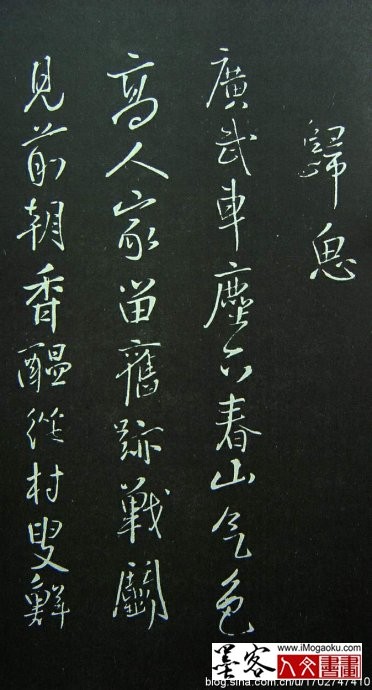 歸思
廣武車塵下春山气色
高人家留舊跡戰鬭
見前朝香醞從村叟鮮
墨客
www.iMogaoku.com
人文書畫
blog.sina.com.cn/u/1702747410